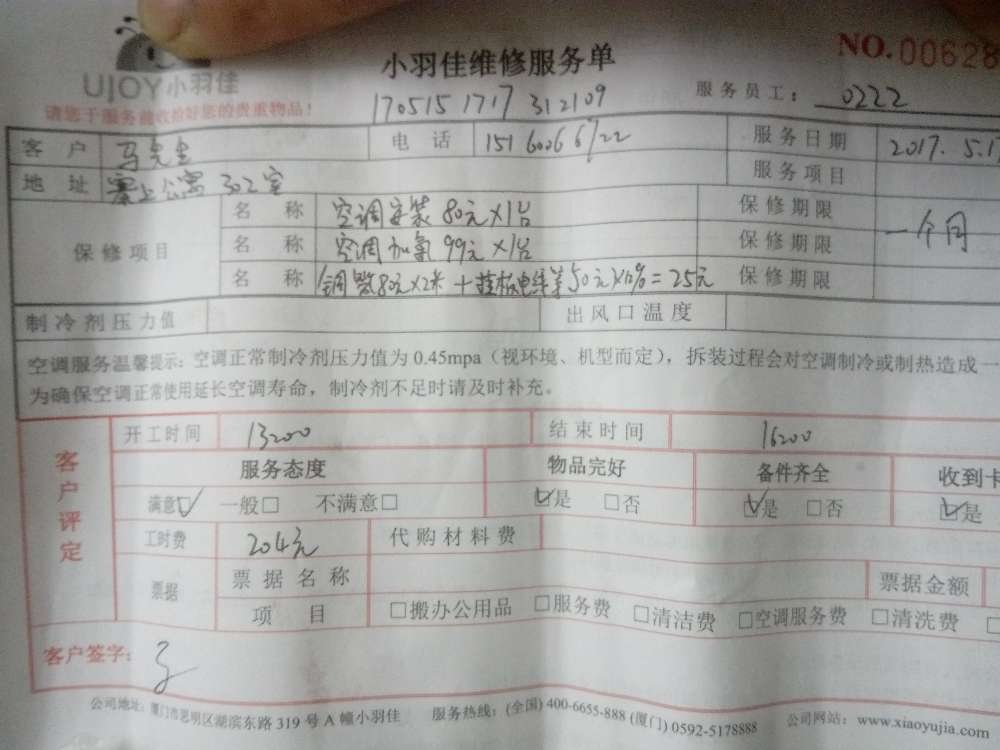 UJOY小羽佳
小羽佳维修服务单
NO.00628
请您于服务前收拾好您的贵重物品！
170515 1717 312109
服务员工： 0222
客户 马先生 电话 15160066122 服务日期 2017.5.17
地址 寨上公寓 302室 服务项目
保修项目 名称 空调安装 80元×1台 保修期限 一个月
名称 空调加氟 99元×1台 保修期限
名称 铜管80元×2米 + 50元 = 25元 保修期限
制冷剂压力值 出风口温度
空调服务温馨提示：空调正常制冷剂压力值为 0.45mpa（视环境、机型而定），拆装过程会对空调制冷或制热造成一
为确保空调正常使用延长空调寿命，制冷剂不足时请及时补充。
客户评定 开工时间 13:00 结束时间 16:00
服务态度 物品完好 备件齐全 收到卡
满意☑ 一般□ 不满意□ ☑是 □否 ☑是 □否 ☑是
工时费 204元 代购材料费
票据 票据名称 票据金额
项目 □搬办公用品 □服务费 □清洁费 □空调服务费 □清洗费 □
客户签字：
公司地址：厦门市思明区湖滨东路 319 号 A 幢小羽佳 服务热线：(全国) 400-6655-888 (厦门) 0592-5178888 公司网站：www.xiaoyujia.com